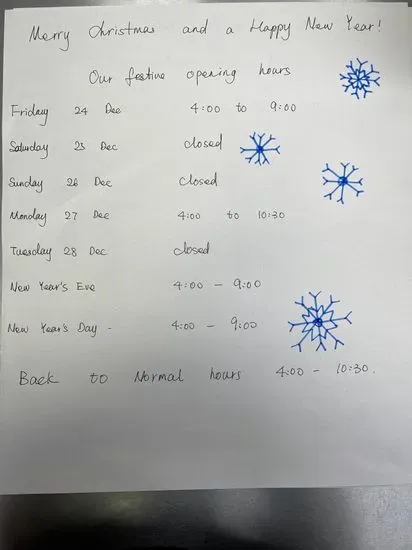 Merry Christmas and a Happy New Year!
Our festive opening hours
Friday 24 Dec 4:00 to 9:00
Saturday 25 Dec closed
Sunday 26 Dec closed
Monday 27 Dec 4:00 to 10:30
Tuesday 28 Dec closed
New Year's Eve 4:00 - 9:00
New Year's Day - 4:00 - 9:00
Back to Normal hours 4:00 - 10:30.